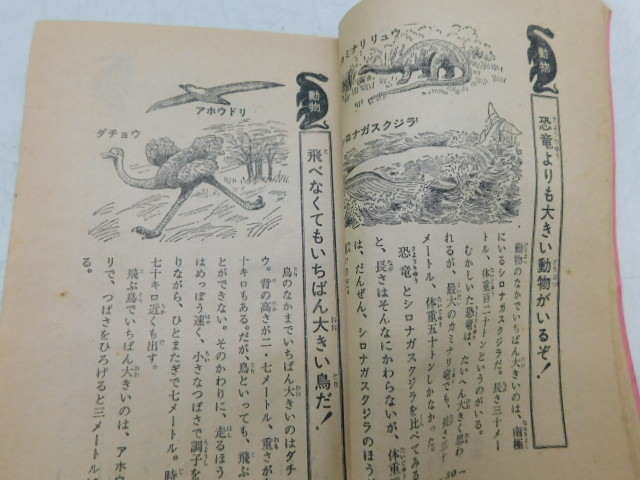 動物
恐竜よりも大きい動物がいるぞ!
カミナリリュウ
シロナガスクジラ
動物のなかでいちばん大きいのは、南極
にいるシロナガスクジラだ。長さ三十メー
トル、体重百二十トンというのがいる。
むかしいた恐竜は、たいへん大きく思わ
れるが、最大のカミナリ竜でも、長さ三十
メートル、体重五十トンしかなかった。
恐竜とシロナガスクジラを比べてみる
と、長さはそんなにかわらないが、体重
は、だんぜん、シロナガスクジラのほう
動物
飛べなくてもいちばん大きい鳥だ!
アホウドリ
ダチョウ
鳥のなかまでいちばん大きいのはダチ
ウ。背の高さが二・七メートル、重さが
十キロもある。だが、鳥といっても、飛ぶ
とができない。そのかわりに、走るほう
はめっぽう速く、小さなつばさで調子を
りながら、ひとまたぎで七メートル。時
七十キロ近くも出す。
飛ぶ鳥でいちばん大きいのは、アホウ
リで、つばさをひろげると三メートル
る。